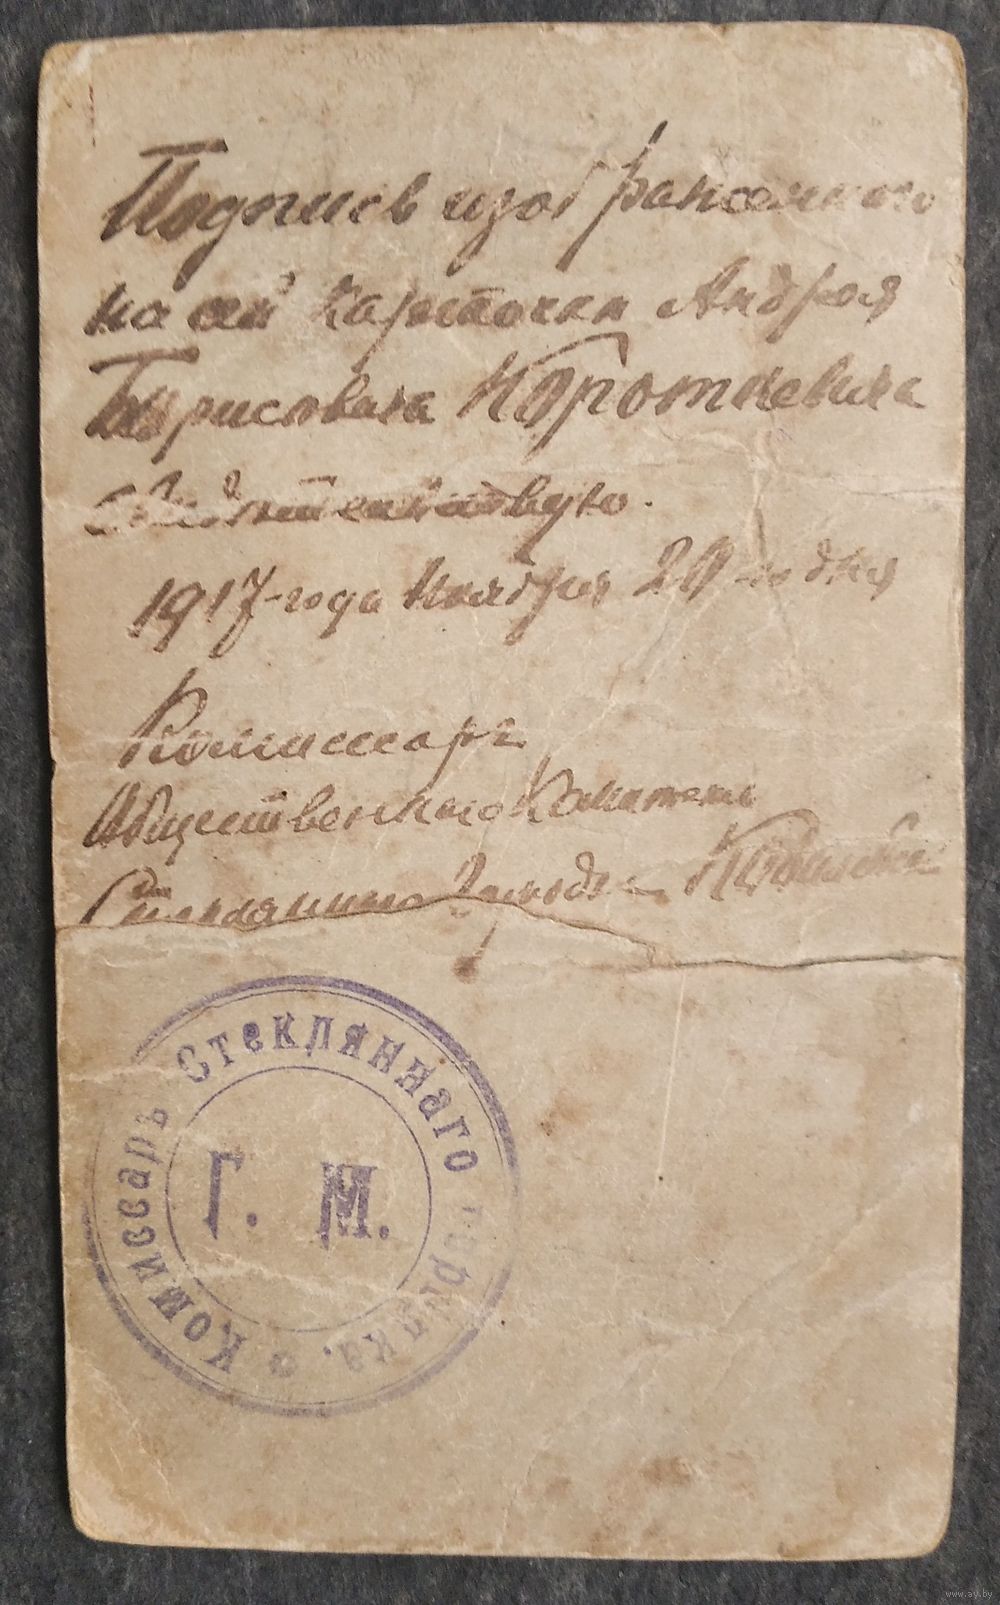 Подпись изображеннаго
на сей карточки Андрея
Борисовича Короткевича
свидетельствую.
1917-года Ноября 20-го дня
Комиссаръ
Общественнаго Комитета
Стекляннаго Городка
Комиссаръ Стекляннаго городка.
Г. М.
www.ay.by